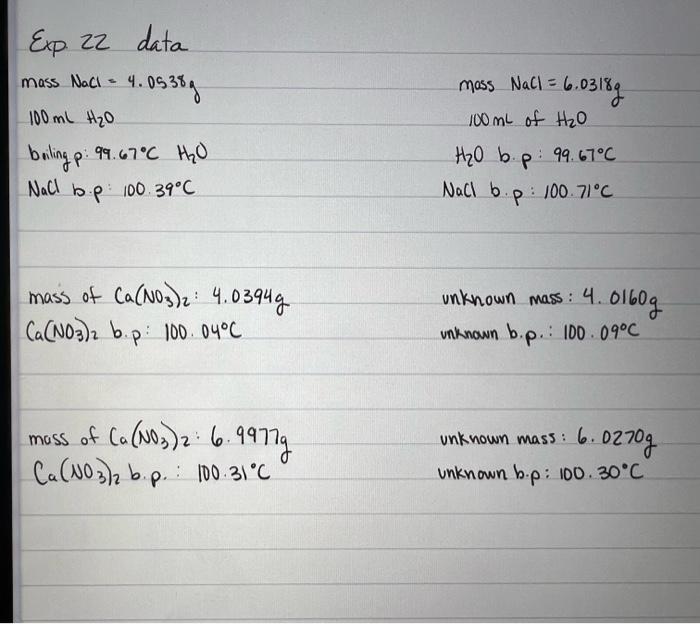 Exp. 22 data
mass NaCl = 4.0538g
100 mL H₂O
boiling p: 99.67°C H₂O
NaCl b.p: 100.39°C
mass NaCl = 6.0318g
100 mL of H₂O
H₂O b.p: 99.67°C
NaCl b.p: 100.71°C
mass of Ca(NO₃)₂: 4.0394g
Ca(NO₃)₂ b.p: 100.04°C
unknown mass: 4.0160g
unknown b.p.: 100.09°C
mass of Ca(NO₃)₂: 6.9977g
Ca(NO₃)₂ b.p.: 100.31°C
unknown mass: 6.0270g
unknown b.p: 100.30°C